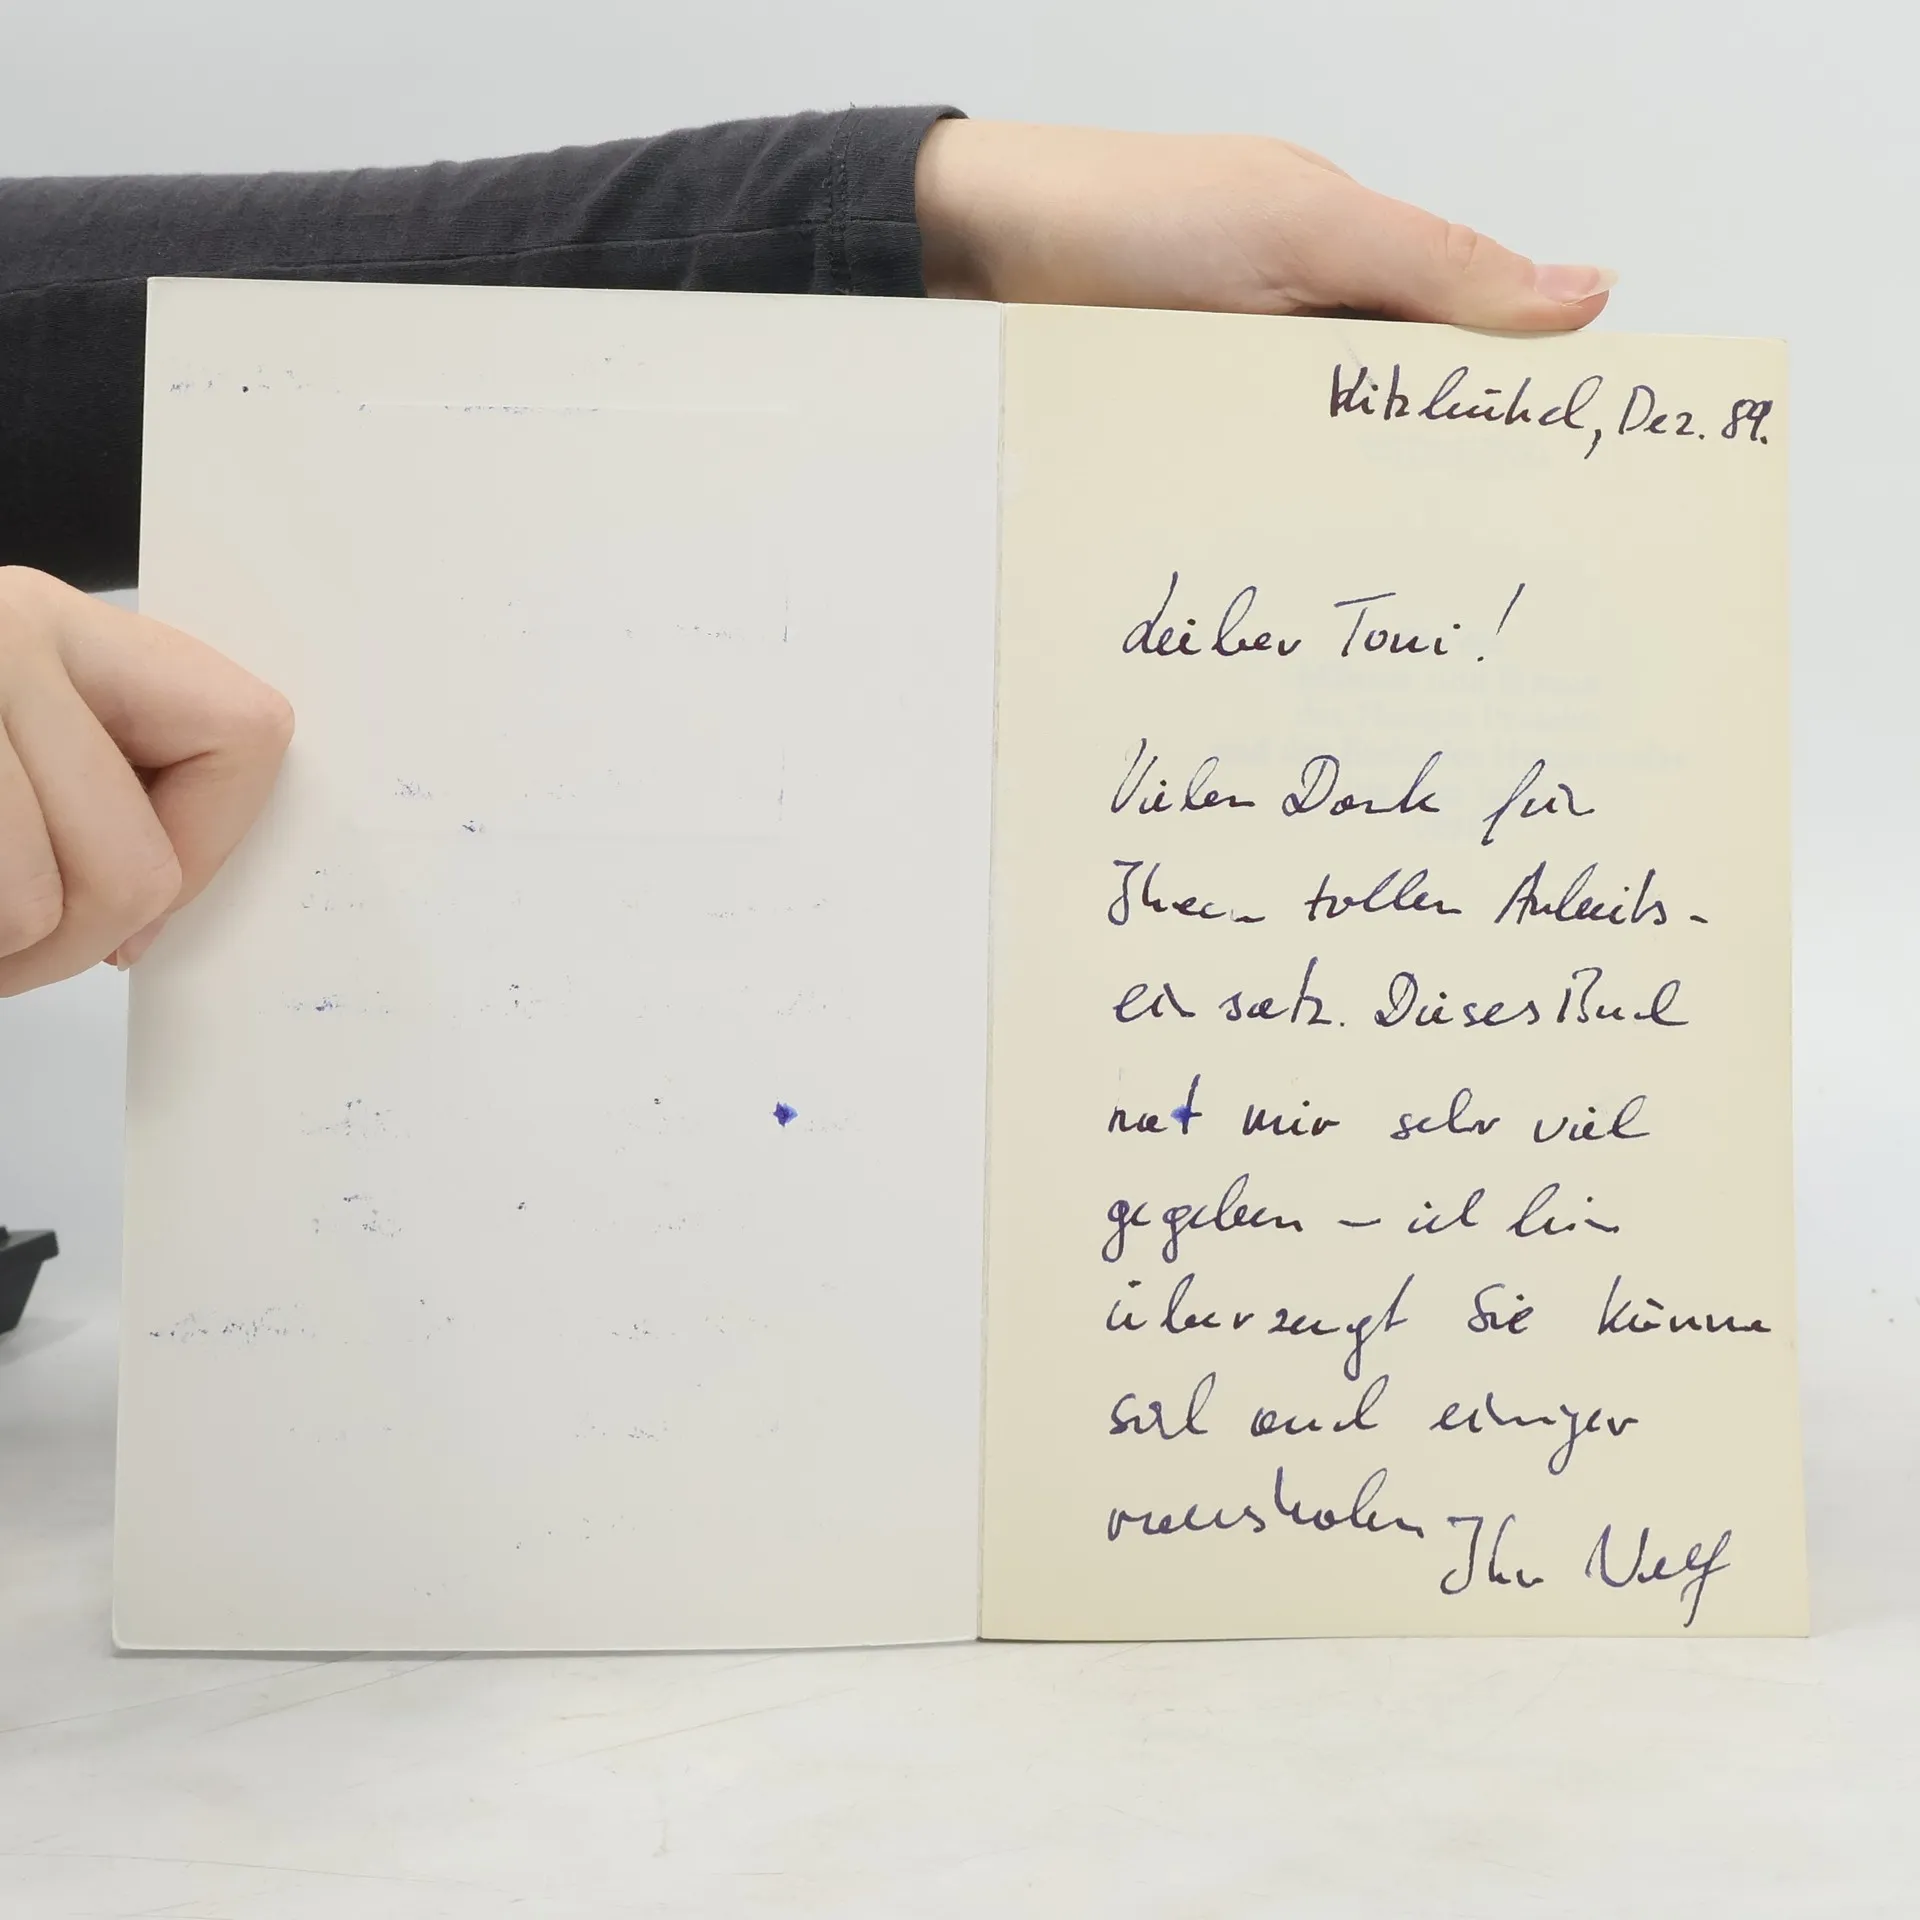 Kitzbühel, Dez. 89.
Lieber Toni!
Vielen Dank für
Ihren tollen Arbeits-
einsatz. Dieses Buch
hat mir sehr viel
gegeben – ich bin
überzeugt Sie können
sich auch einiger
rausholen
Ihr